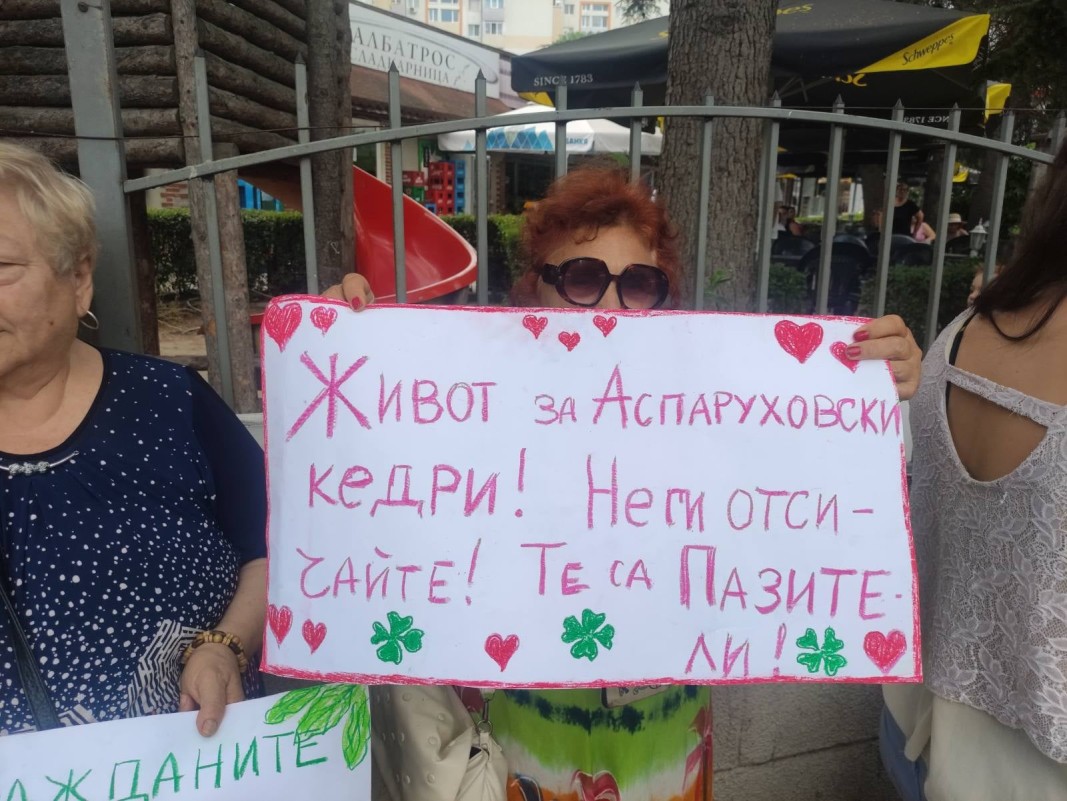 АЛБАТРОС
СЛАДКАРНИЦА
Schweppes
SINCE 1783
Живот за Аспаруховски
кедри! Не ги отси-
чайте! Те са Пазите-
ли!
АЖДАНИТЕ